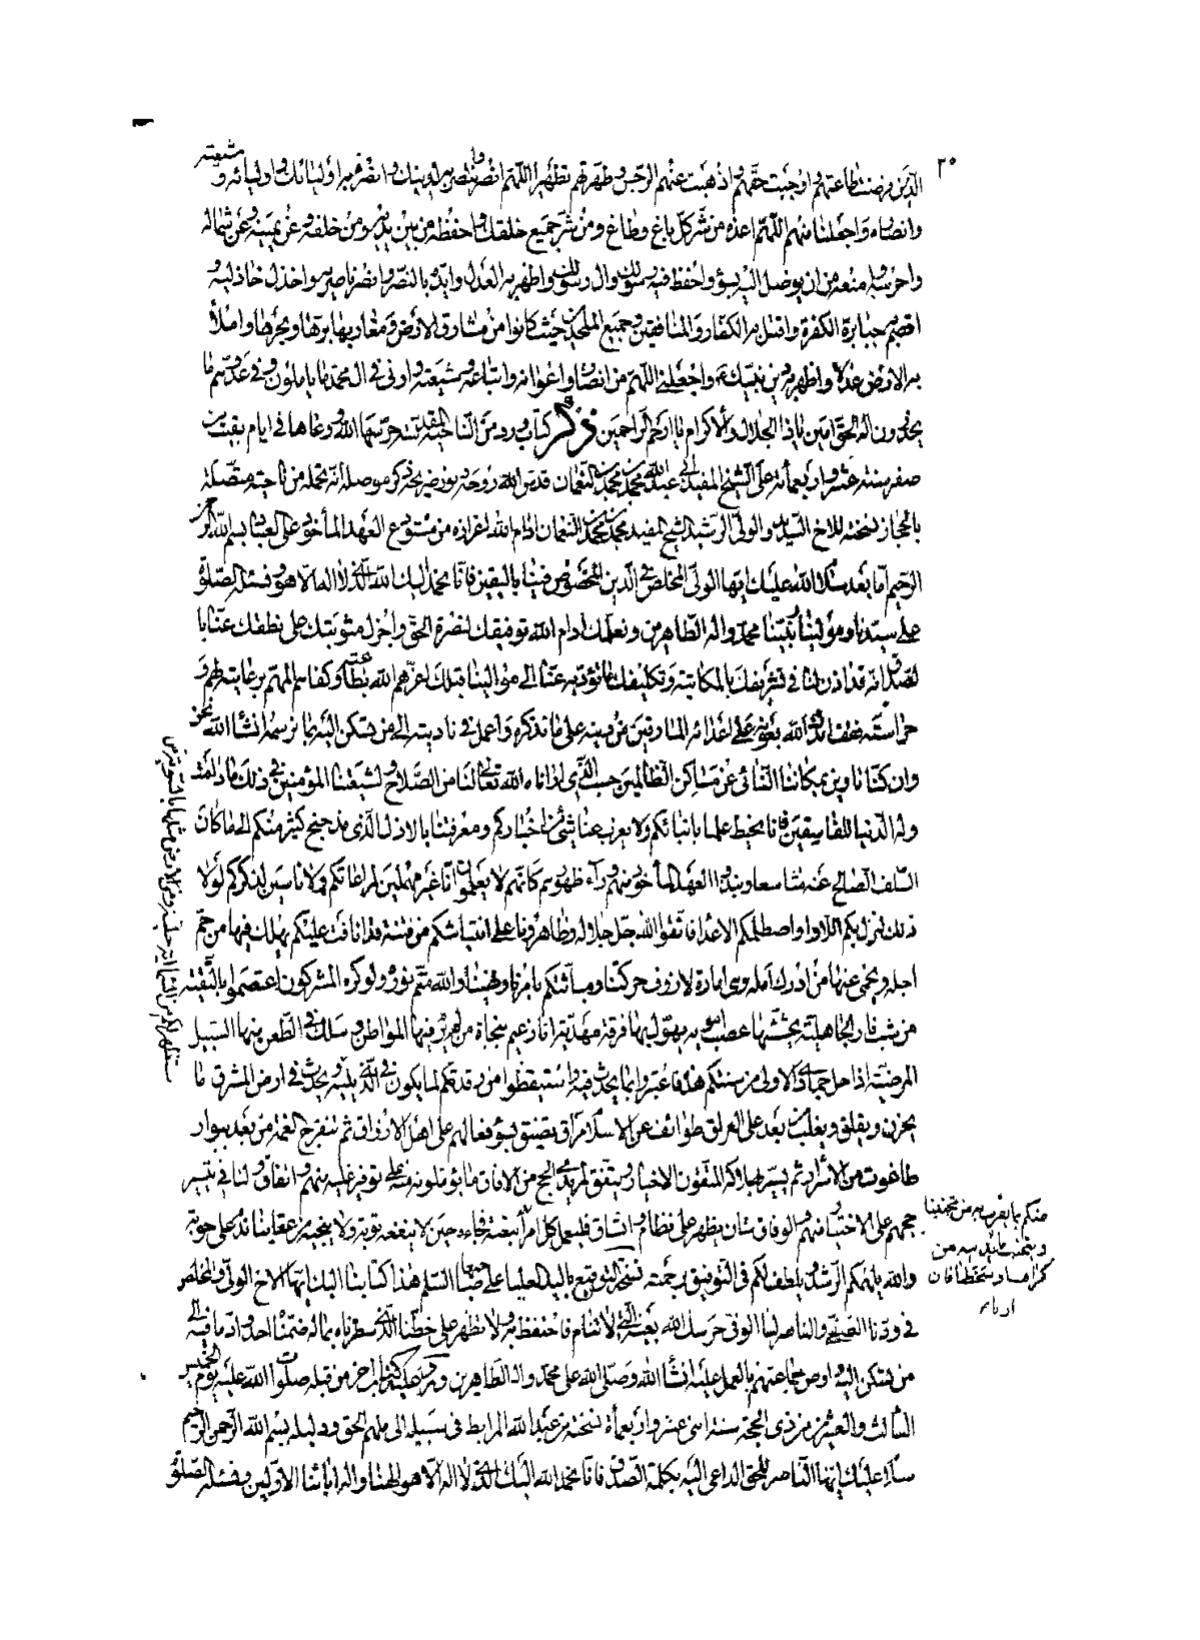 ٢٥
الذين فرضت طاعتهم واوجبت حقهم واذهبت عنهم الرجس وطهرتهم تطهيرا اللهم انصره وانتصر به لدينك وانصر به اوليائك واوليائه وشيعته
وانصاره واجعلنا منهم اللهم اعذه من شر كل باغ وطاغ ومن شر جميع خلقك واحفظه من بين يديه ومن خلفه وعن يمينه وعن شماله
واحرسه وامنعه من ان يوصل اليه بسوء واحفظ فيه رسولك وال رسولك واظهر به العدل وايده بالنصر وانصر ناصريه واخذل خاذليه
اقصم به جبابرة الكفرة واقتل به الكفار والمنافقين وجميع الملحدين حيث كانوا من مشارق الارض ومغاربها برها وبحرها واملأ
به الارض عدلا واظهر به دين نبيك واجعلني اللهم من انصاره واعوانه واتباعه وشيعته وارني في ال محمد ما ياملون وفي عدوهم ما
يحذرون اله الحق امين يا ذا الجلال والاكرام يا ارحم الراحمين ذكر كتاب ورد من الناحية المقدسة حرسها الله ورعاها في ايام بقيت من
صفر سنة عشر واربعمائة على الشيخ المفيد ابي عبد الله محمد بن محمد بن النعمان قدس الله روحه ونور ضريحه ذكر موصله انه تحمله من ناحية متصلة
بالحجاز نسخته للاخ السديد والولي الرشيد الشيخ المفيد محمد بن محمد بن النعمان ادام الله اعزازه من مستودع العهد المأخوذ على العباد بسم الله الرحمن
الرحيم اما بعد سلام الله عليك ايها الولي المخلص في الدين المخصوص فينا باليقين فانا نحمد اليك الله الذي لا اله الا هو ونسئله الصلوة
على سيدنا ومولينا نبينا محمد واله الطاهرين ونعلمك ادام الله توفيقك لنصرة الحق واجزل مثوبتك على نطقك عنا با
لصدق انه قد اذن لنا في تشريفك بالمكاتبة وتكليفك ما تؤديه عنا الى موالينا قبلك اعزهم الله بطاعته وكفاهم المهم برعايته لهم و
حراسته فقف ايدك الله بعونه على اعدائه المارقين من دينه على ما نذكره واعمل في تاديته الى من تسكن اليه بما نرسمه انشاء الله نحن
وان كنا ناوين بمكاننا النائي عن مساكن الظالمين حسب الذي اراناه الله تعالى لنا من الصلاح ولشيعتنا المؤمنين في ذلك ما دامت
دولة الدنيا للفاسقين فانا نحيط علما بانبائكم ولا يعزب عنا شئ من اخباركم ومعرفتنا بالاذلال الذي مذ جنح كثير منكم الى ما كان
السلف الصالح عنه شاسعا ونبذوا العهد المأخوذ منهم وراء ظهورهم كانهم لا يعلمون انا غير مهملين لمراعاتكم ولا ناسين لذكركم لولا
ذلك لنزل بكم اللاواء واصطلمكم الاعداء فاتقوا الله جل جلاله وظاهرونا على انتياشكم من فتنة قد انافت عليكم يهلك فيها من حم
اجله ويحمى عنها من ادرك امله وهي امارة لازوف حركتنا ومباثتكم بامرنا ونهينا والله متم نوره ولو كره المشركون اعتصموا بالتقية
من شب نار الجاهلية يحششها عصب اموية يهول بها فرقة مهدية انا زعيم بنجاة من لم يرم فيها المواطن وسلك في الطعن منها السبيل
المرضية اذا حل جمادى الاولى من سنتكم هذه فاعتبروا بما يحدث فيه واستيقظوا من رقدتكم لما يكون في الذي يليه ويحدث في ارض المشرق ما
يحزن ويقلق ويغلب من بعد على العراق طوائف عن الاسلام مراق تضيق بسوء فعالهم على اهله الارزاق ثم تنفرج الغمة من بعد ببوار
طاغوت من الاشرار ثم يسر بهلاكه المتقون الاخيار ويتفق لمريدي الحج من الافاق ما يؤملونه منه على توفير عليه منهم واتفاق ولنا في تيسير
حجهم على الاختيار منهم والوفاق شان يظهر على نظام واتساق فليعمل كل امرء بغتة فجاءة حين لا ينفعه توبة ولا ينجيه من عقابنا ندم على حوبة
والله يلهمكم الرشد ويلطف لكم في التوفيق برحمته نسخة التوقيع باليد العليا على صاحبها السلم هذا كتابنا اليك ايها الاخ الولي والمخلص
في ودنا الصفي والناصر لنا الوفي حرسك الله بعينه التي لا تنام فاحتفظ به ولا تظهر على خطنا الذي سطرناه بما له ضمناه احدا واد ما فيه الى
من تسكن اليه واوص جماعتهم بالعمل عليه انشاء الله وصلى الله على محمد واله الطاهرين وورد عليه كتاب اخر من قبله صلوات الله عليه يوم الخميس
الثالث والعشرين من ذي الحجة سنة اثني عشر واربعمائة نسخته من عبد الله المرابط في سبيله الى ملهم الحق ودليله بسم الله الرحمن الرحيم
سلام عليك ايها الناصر للحق الداعي اليه بكلمة الصدق فانا نحمد الله اليك الذي لا اله الا هو الهنا واله ابائنا الاولين ونسئله الصلوة
منكم بما يقرب به من محبتنا
ويتجنب ما يدنيه من
كراهتنا وسخطنا فان
امرنا
ستظهر لكم من السماء اية جلية ومن الارض مثلها بالسوية